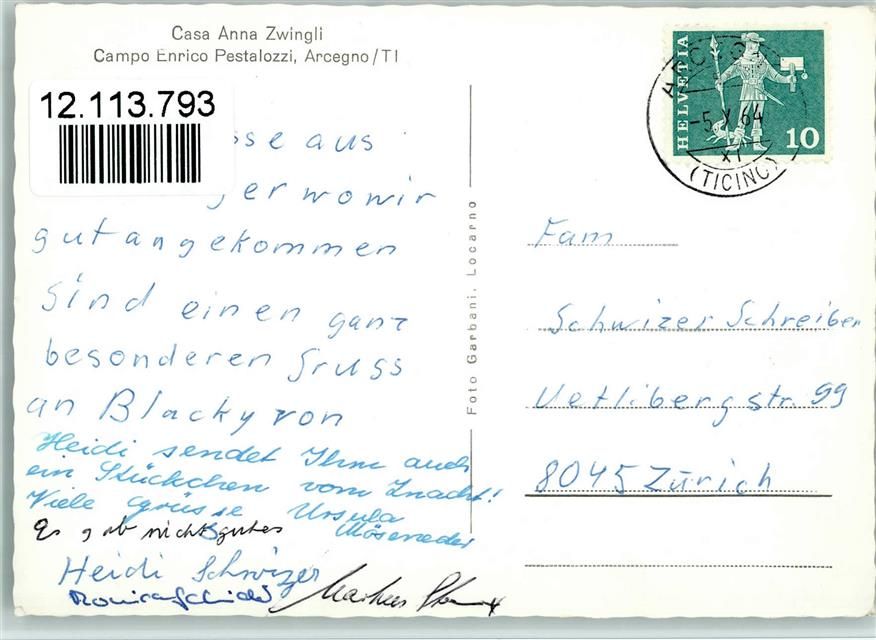 Casa Anna Zwingli
Campo Enrico Pestalozzi, Arcegno/TI
12.113.793
sse aus
ger wo wir
gut angekommen
sind einen ganz
besonderen Gruss
an Blacky von
Heidi sendet Ihm auch
ein Stückchen vom Znacht!
Viele Grüsse Ursula
Es gab nichts gutes
Heidi Schwizer
Markus
Foto Garbani, Locarno
HELVETIA
10
ARCEGNO
-5.X.64
XI
(TICINO)
Fam
Schwizer Schreiber
Uetlibergstr. 99
8045 Zürich